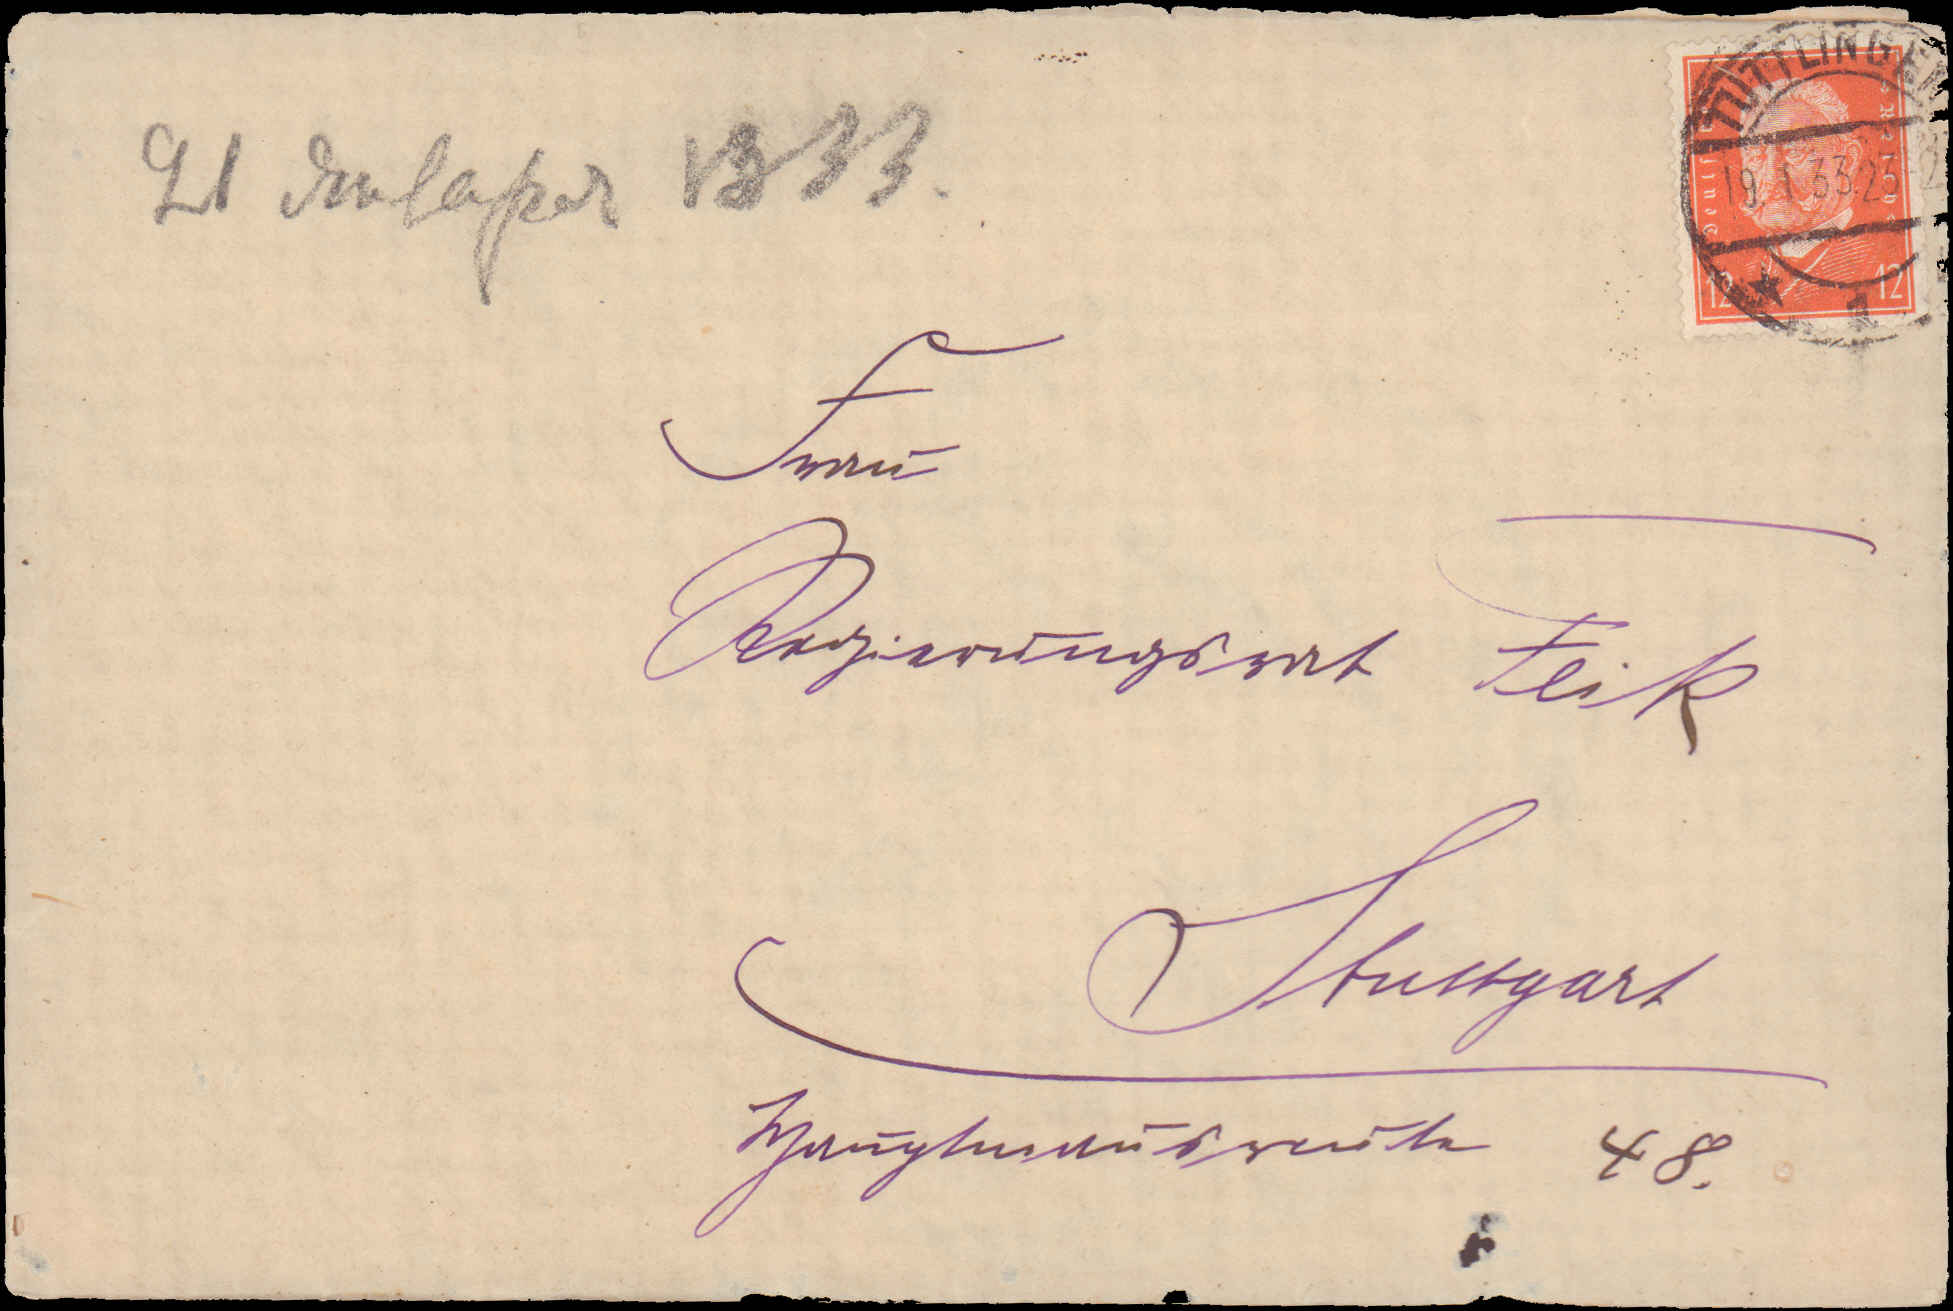 TUTTLINGEN
19.1.33.23-24
Deutsches Reich
12 12
1933.
Frau
Regierungsrat Feik
Stuttgart
Hauptmannsreute 48.